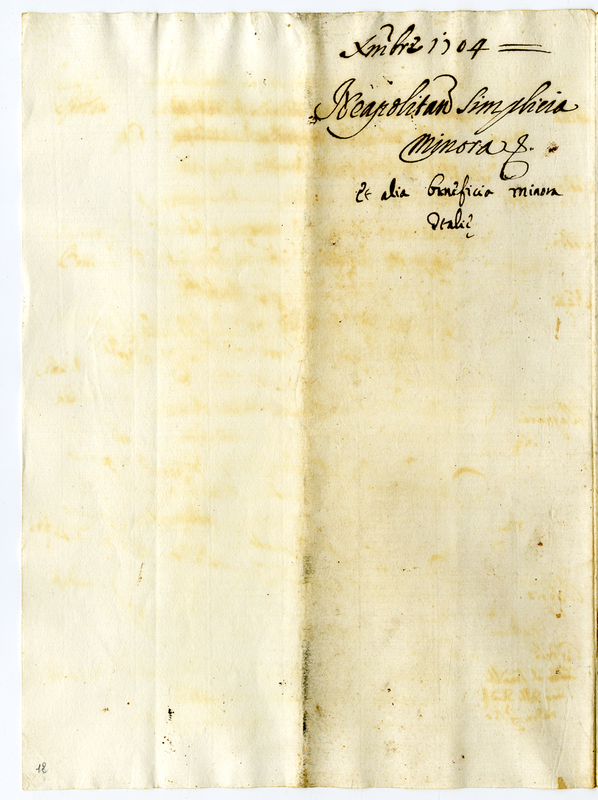 Xmbre 1704
Neapolitan Simplicia
minora &.
et alia beneficia minora
Italie
12